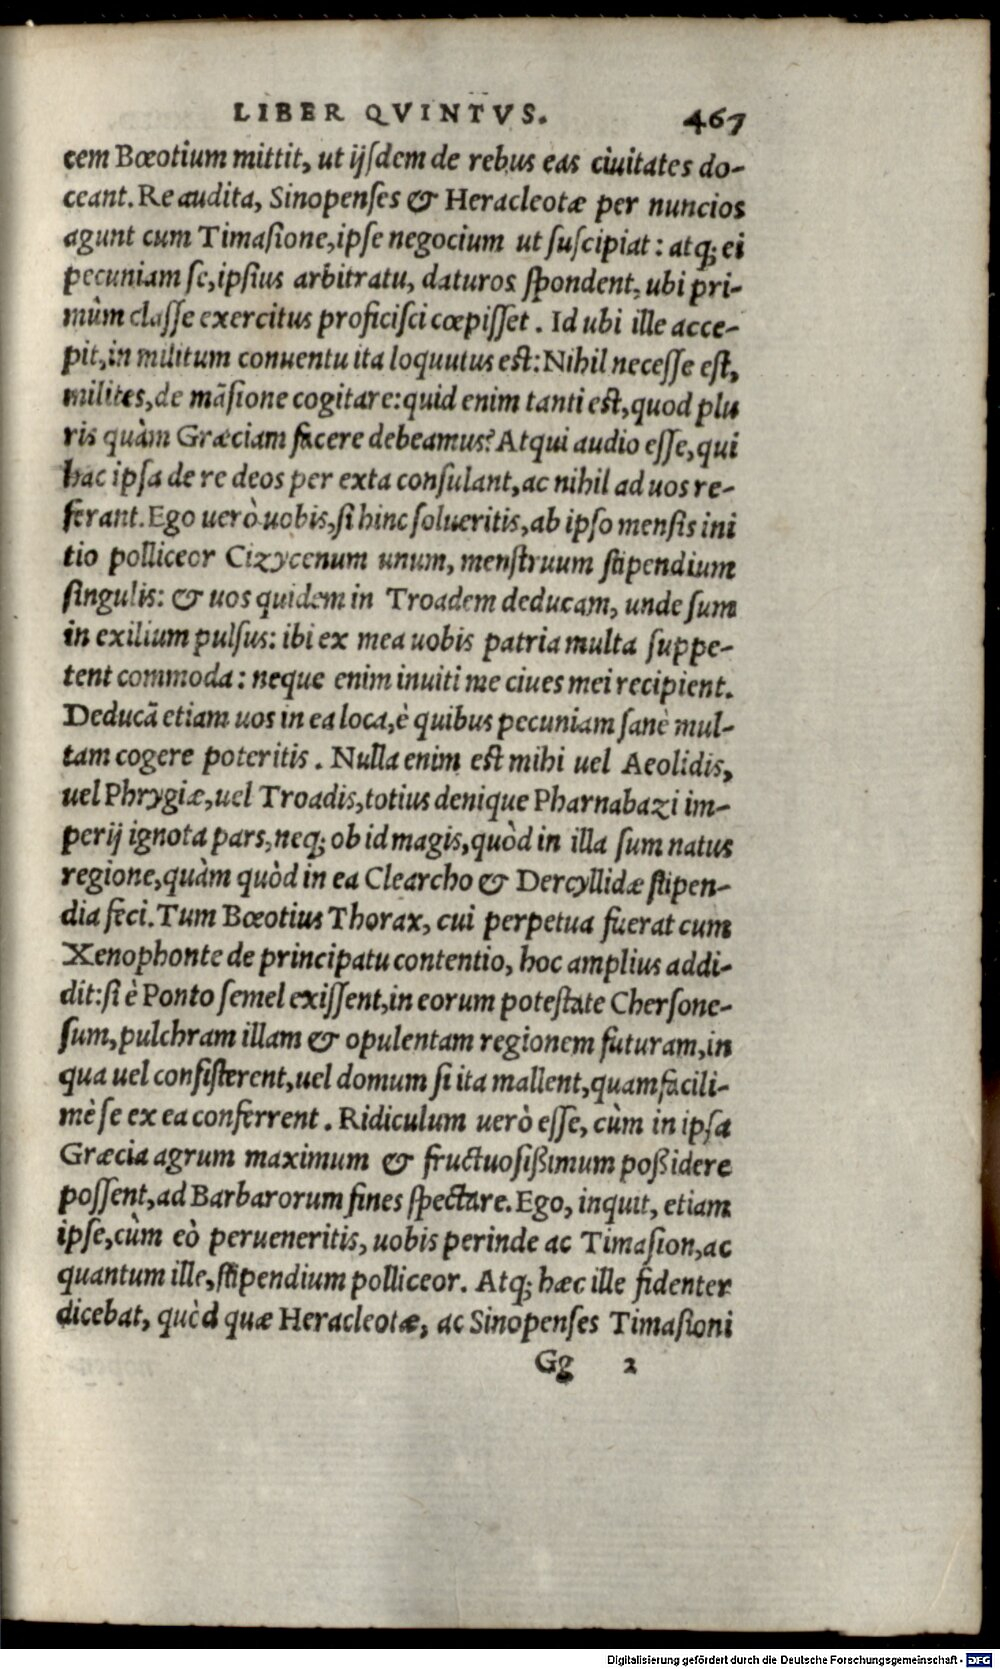 LIBER QVINTVS. 467
cem Bœotium mittit, ut ijsdem de rebus eas ciuitates do-
ceant. Re audita, Sinopenses & Heracleotæ per nuncios
agunt cum Timasione, ipse negocium ut suscipiat: atq; ei
pecuniam se, ipsius arbitratu, daturos spondent, ubi pri-
mùm classe exercitus proficisci cœpisset. Id ubi ille acce-
pit, in militum conuentu ita loquutus est: Nihil necesse est,
milites, de māsione cogitare: quid enim tanti est, quod plu
ris quàm Græciam facere debeamus? Atqui audio esse, qui
hac ipsa de re deos per exta consulant, ac nihil ad uos re-
ferant. Ego uerò uobis, si hinc solueritis, ab ipso mensis ini
tio polliceor Cizycenum unum, menstruum stipendium
singulis: & uos quidem in Troadem deducam, unde sum
in exilium pulsus: ibi ex mea uobis patria multa suppe-
tent commoda: neque enim inuiti me ciues mei recipient.
Deducā etiam uos in ea loca, è quibus pecuniam sanè mul-
tam cogere poteritis. Nulla enim est mihi uel Aeolidis,
uel Phrygiæ, uel Troadis, totius denique Pharnabazi im-
perij ignota pars, neq; ob id magis, quòd in illa sum natus
regione, quàm quòd in ea Clearcho & Dercyllidæ stipen-
dia feci. Tum Bœotius Thorax, cui perpetua fuerat cum
Xenophonte de principatu contentio, hoc amplius addi-
dit: si è Ponto semel exissent, in eorum potestate Chersone-
sum, pulchram illam & opulentam regionem futuram, in
qua uel consisterent, uel domum si ita mallent, quam facili-
mè se ex ea conferrent. Ridiculum uerò esse, cùm in ipsa
Græcia agrum maximum & fructuosißimum poßidere
possent, ad Barbarorum fines spectare. Ego, inquit, etiam
ipse, cùm eò perueneritis, uobis perinde ac Timasion, ac
quantum ille, stipendium polliceor. Atq; hæc ille fidenter
dicebat, quòd quæ Heracleotæ, ac Sinopenses Timasioni
Gg 2
Digitalisierung gefördert durch die Deutsche Forschungsgemeinschaft - DFG